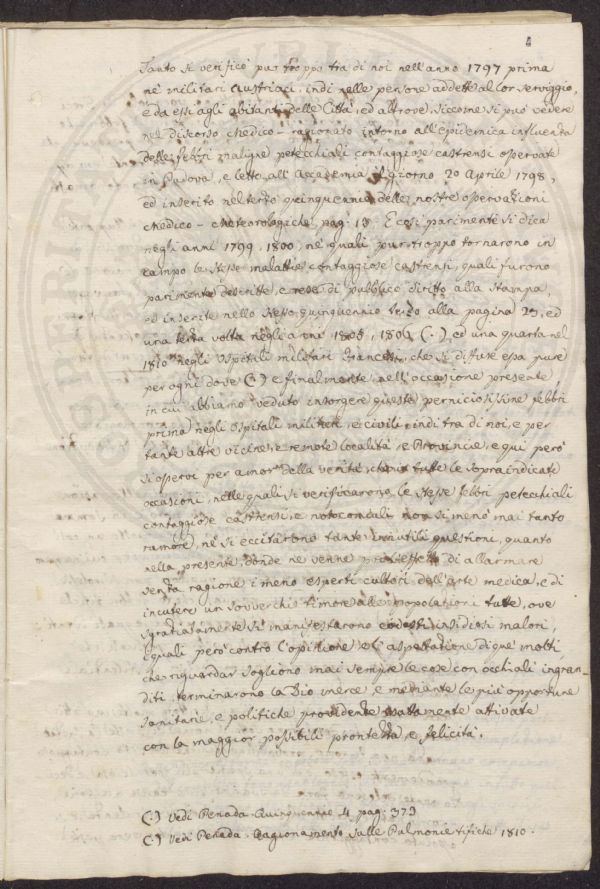 4
Tanto si verificò pur troppo tra di noi nell'anno 1797 prima
ne' militari Austriaci, indi nelle persone addette al lor servigio,
e da essi agli abitanti delle Città, ed altrove, siccome si può vedere
nel discorso Medico-ragionato intorno all'epidemica influenza
delle febbri maligne petecchiali contaggiose castrensi osservate
in Padova, e letto all'Accademia il giorno 20 Aprile 1798,
ed inserito nel terzo quinquennio delle nostre osservazioni
Medico-Meteorologiche pag: 18. E così parimente si dica
negli anni 1799, 1800, ne' quali pur troppo tornarono in
campo le stesse malattie contaggiose castrensi, quali furono
parimente descritte, e rese di pubblico diritto alla stampa,
ed inserite nello stesso quinquennio terzo alla pagina 29, ed
una terza volta negli anni 1805, 1806 (.), ed una quarta nel
1810 negli Ospitali militari francesi, che si difuse essa pure
per ogni dove (:) e finalmente nell'occasione presente
in cui abbiamo veduto insorgere queste perniciosissime febbri
prima negli Ospitali militari, e civili, indi tra di noi, e per
tante altre vicine, e remote località, e Provincie, e qui però
si osservi per amor della verità, che in tutte le sopraindicate
occasioni, nelle quali si verificarono le stesse febbri petecchiali
contaggiose castrensi, e notocomiali non si menò mai tanto
ramore, nè si eccitarono tante innutili questioni, quanto
nella presente, donde ne venne di allarmare
senza ragione i meno esperti cultori dell'arte medica, e di
incutere un soverchio timore alle popolazioni tutte, ove
sgraziatamente si manifestarono codesti insidiosi malori,
i quali però contro l'opinione ed aspettazione di que' molti,
che riguardar sogliono mai sempre le cose con occhiali ingran_
diti, terminarono la Dio mercè, e mediante le più opportune
sanitarie, e politiche providenze esattamente attivate
con la maggior possibile prontezza, e felicità.
(.) Vedi Penada. Quinquennio 4 pag: 373
(:) Vedi Penada. Ragionamento sulle Pulmonie tifiche 1810.